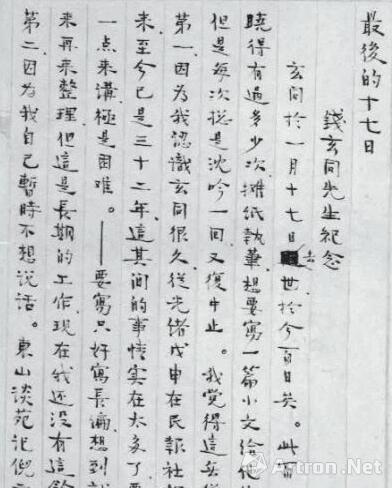 最後的十七日
錢玄同先生紀念
玄同於一月十七日去世於今百日矣。此百
曉得有過多少次攤紙執筆想要寫一篇小文給他
但是每次總是沈吟一回又復中止。我覺得這
第一、因為我認識玄同很久從光緒戊申在民報社
来至今已是三十二年這其間的事情实在太多了要
一点来講極是困难。——要寫只好寫長篇想到
来再来整理但這是長期的工作現在我还没有這
第二因为我自己暫時不想说话。東山談苑記倪
Artron.Net